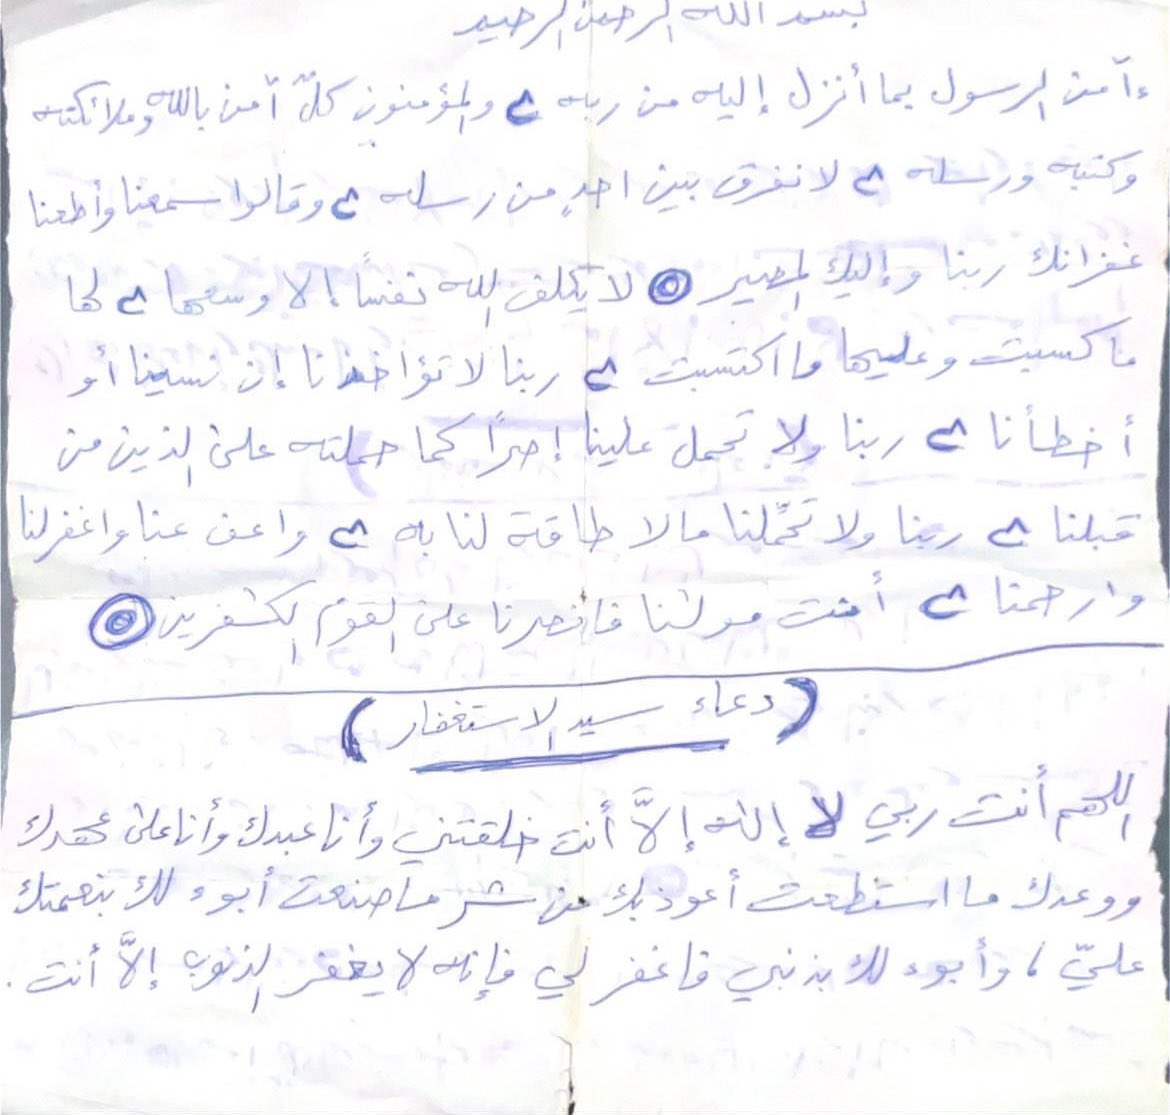 بسم الله الرحمن الرحيم
ءآمن الرسول بما أنزل إليه من ربه ج والمؤمنون كلٌّ آمن بالله وملائكته
وكتبه ورسله ج لا نفرق بين احدٍ من رسله ج وقالوا سمعنا وأطعنا
غفرانك ربنا وإليك المصير لا يكلف الله نفساً إلا وسعها ج لها
ما كسبت وعليها ما اكتسبت ج ربنا لا تؤاخذنا إن نسينا أو
أخطأنا ج ربنا ولا تحمل علينا إصراً كما حملته على الذين من
قبلنا ج ربنا ولا تحمّلنا مالا طاقة لنا به ج واعف عنا واغفر لنا
وارحمنا ج أنت مولىٰنا فانصرنا على القوم الكٰفرين
(دعاء سيد الاستغفار)
اللهم أنت ربي لا إله إلاَّ أنت خلقتني وأنا عبدك وأنا على عهدك
ووعدك ما استطعت أعوذ بك من شر ما صنعت أبوء لك بنعمتك
عليّ ، وأبوء لك بذنبي فاغفر لي فإنه لا يغفر الذنوب إلاَّ أنت .